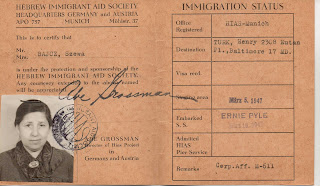 HEBREW IMMIGRANT AID SOCIETY
HEADQUARTERS GERMANY and AUSTRIA
APO 757 MUNICH Möhlstr. 37
This is to certify that
Mr.
Mrs.
is under the protection and sponsorship of the
HEBREW IMMIGRANT AID SOCIETY.
Any courtesy extended to the above named
will be appreciated.
Abe Grossman
ABE GROSSMAN
Director of Hias Project in
Germany and Austria
IMMIGRATION STATUS
Office
Registered
HIAS-Munich
Destination
TURK, Henry
Pl., Baltimore 17 MD.
Visa recd.
1947
Embarked
S. S.
ERNIE PYLE
Admitted
HIAS
Pier Service
Remarks
Corp.Aff. M-611